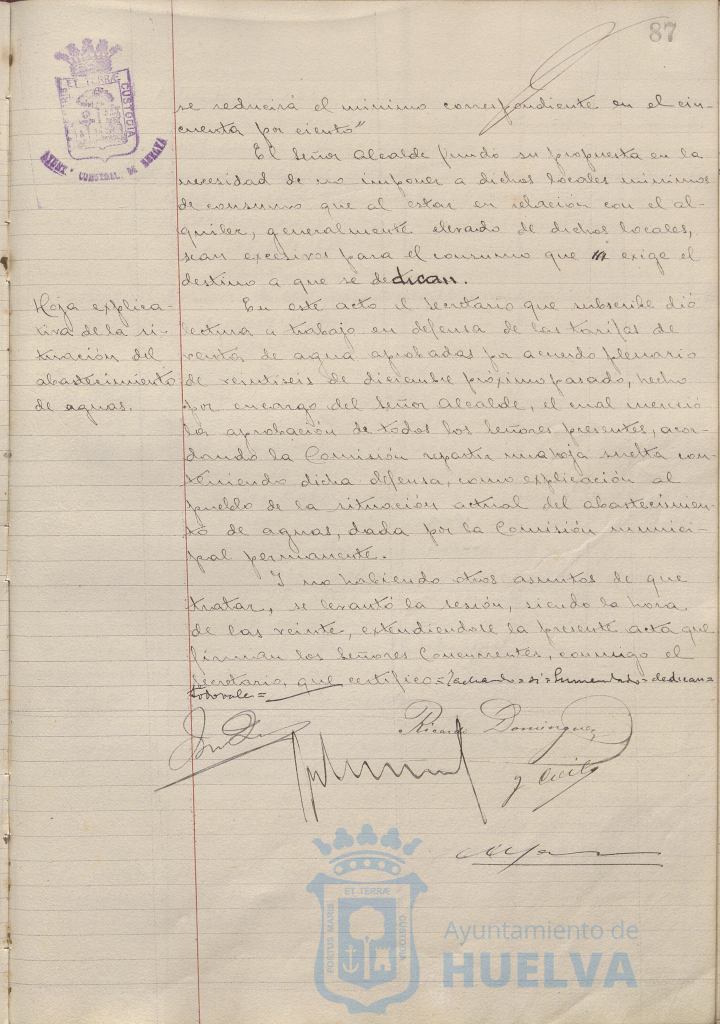 87
ET TERRÆ
CUSTODIA
AYUNT. CONSTBAL. DE HUELVA
se reducirá el mínimo correspondiente en el cin-
cuenta por ciento"
El Señor Alcalde fundó su propuesta en la
necesidad de no imponer a dichos locales mínimos
de consumo que al estar en relación con el al-
quiler, generalmente elevado de dichos locales,
sean excesivos para el consumo que exige el
destino a que se dedican.
Hoja explica-
tiva de la si-
tuación del
abastecimiento
de aguas.
En este acto el Secretario que subscribe dió
lectura a trabajo en defensa de las tarifas de
venta de agua aprobadas por acuerdo plenario
de veintiseis de diciembre próximo pasado, hecho
por encargo del Señor Alcalde, el cual mereció
la aprobación de todos los Señores presentes, acor-
dando la Comisión repartir una hoja suelta con-
teniendo dicha defensa, como explicación al
pueblo de la situación actual del abastecimien-
to de aguas, dada por la Comisión munici-
pal permanente.
Y no habiendo otros asuntos de que
tratar, se levantó la sesión, siendo la hora
de las veinte, extendiéndose la presente acta que
firman los Señores Concurrentes, conmigo el
Secretario, que certifico = Tachado = = Enmendado = dedican =
todo vale =
Ricardo Domínguez
ET TERRÆ
PORTUS MARIS
CUSTODIA
Ayuntamiento de
HUELVA